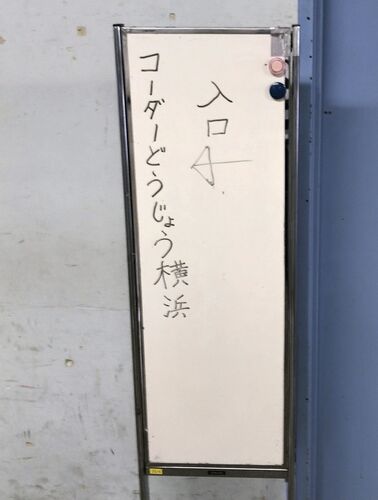 入口
コーダーどうじょう横浜